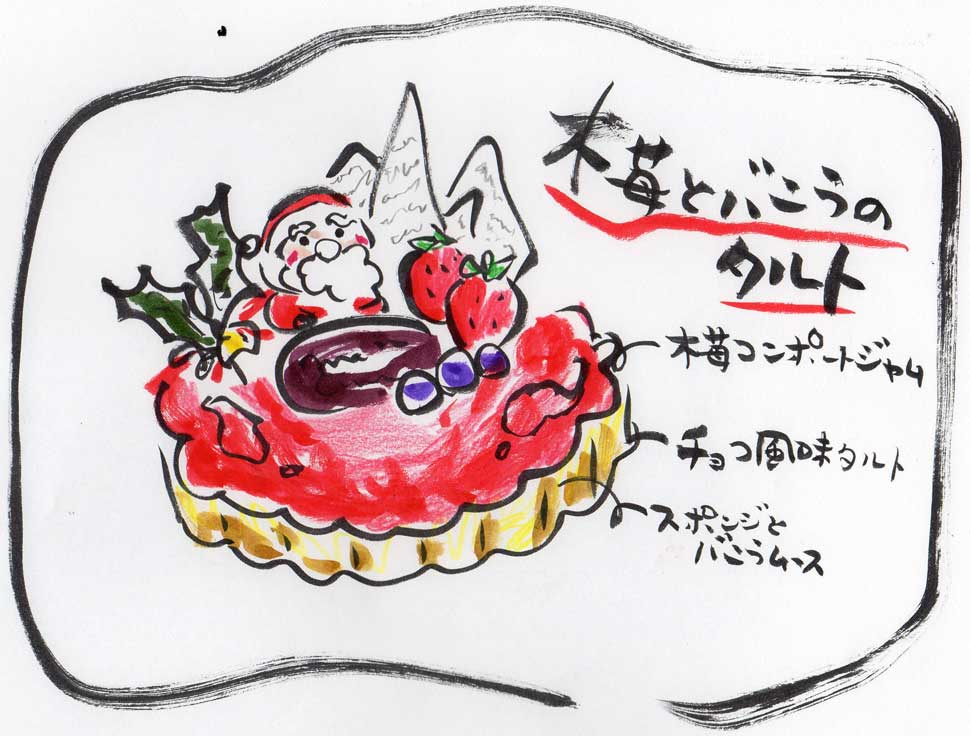 木苺とばにらの
タルト
木苺コンポートジャム
チョコ風味タルト
スポンジと
ばにらムース